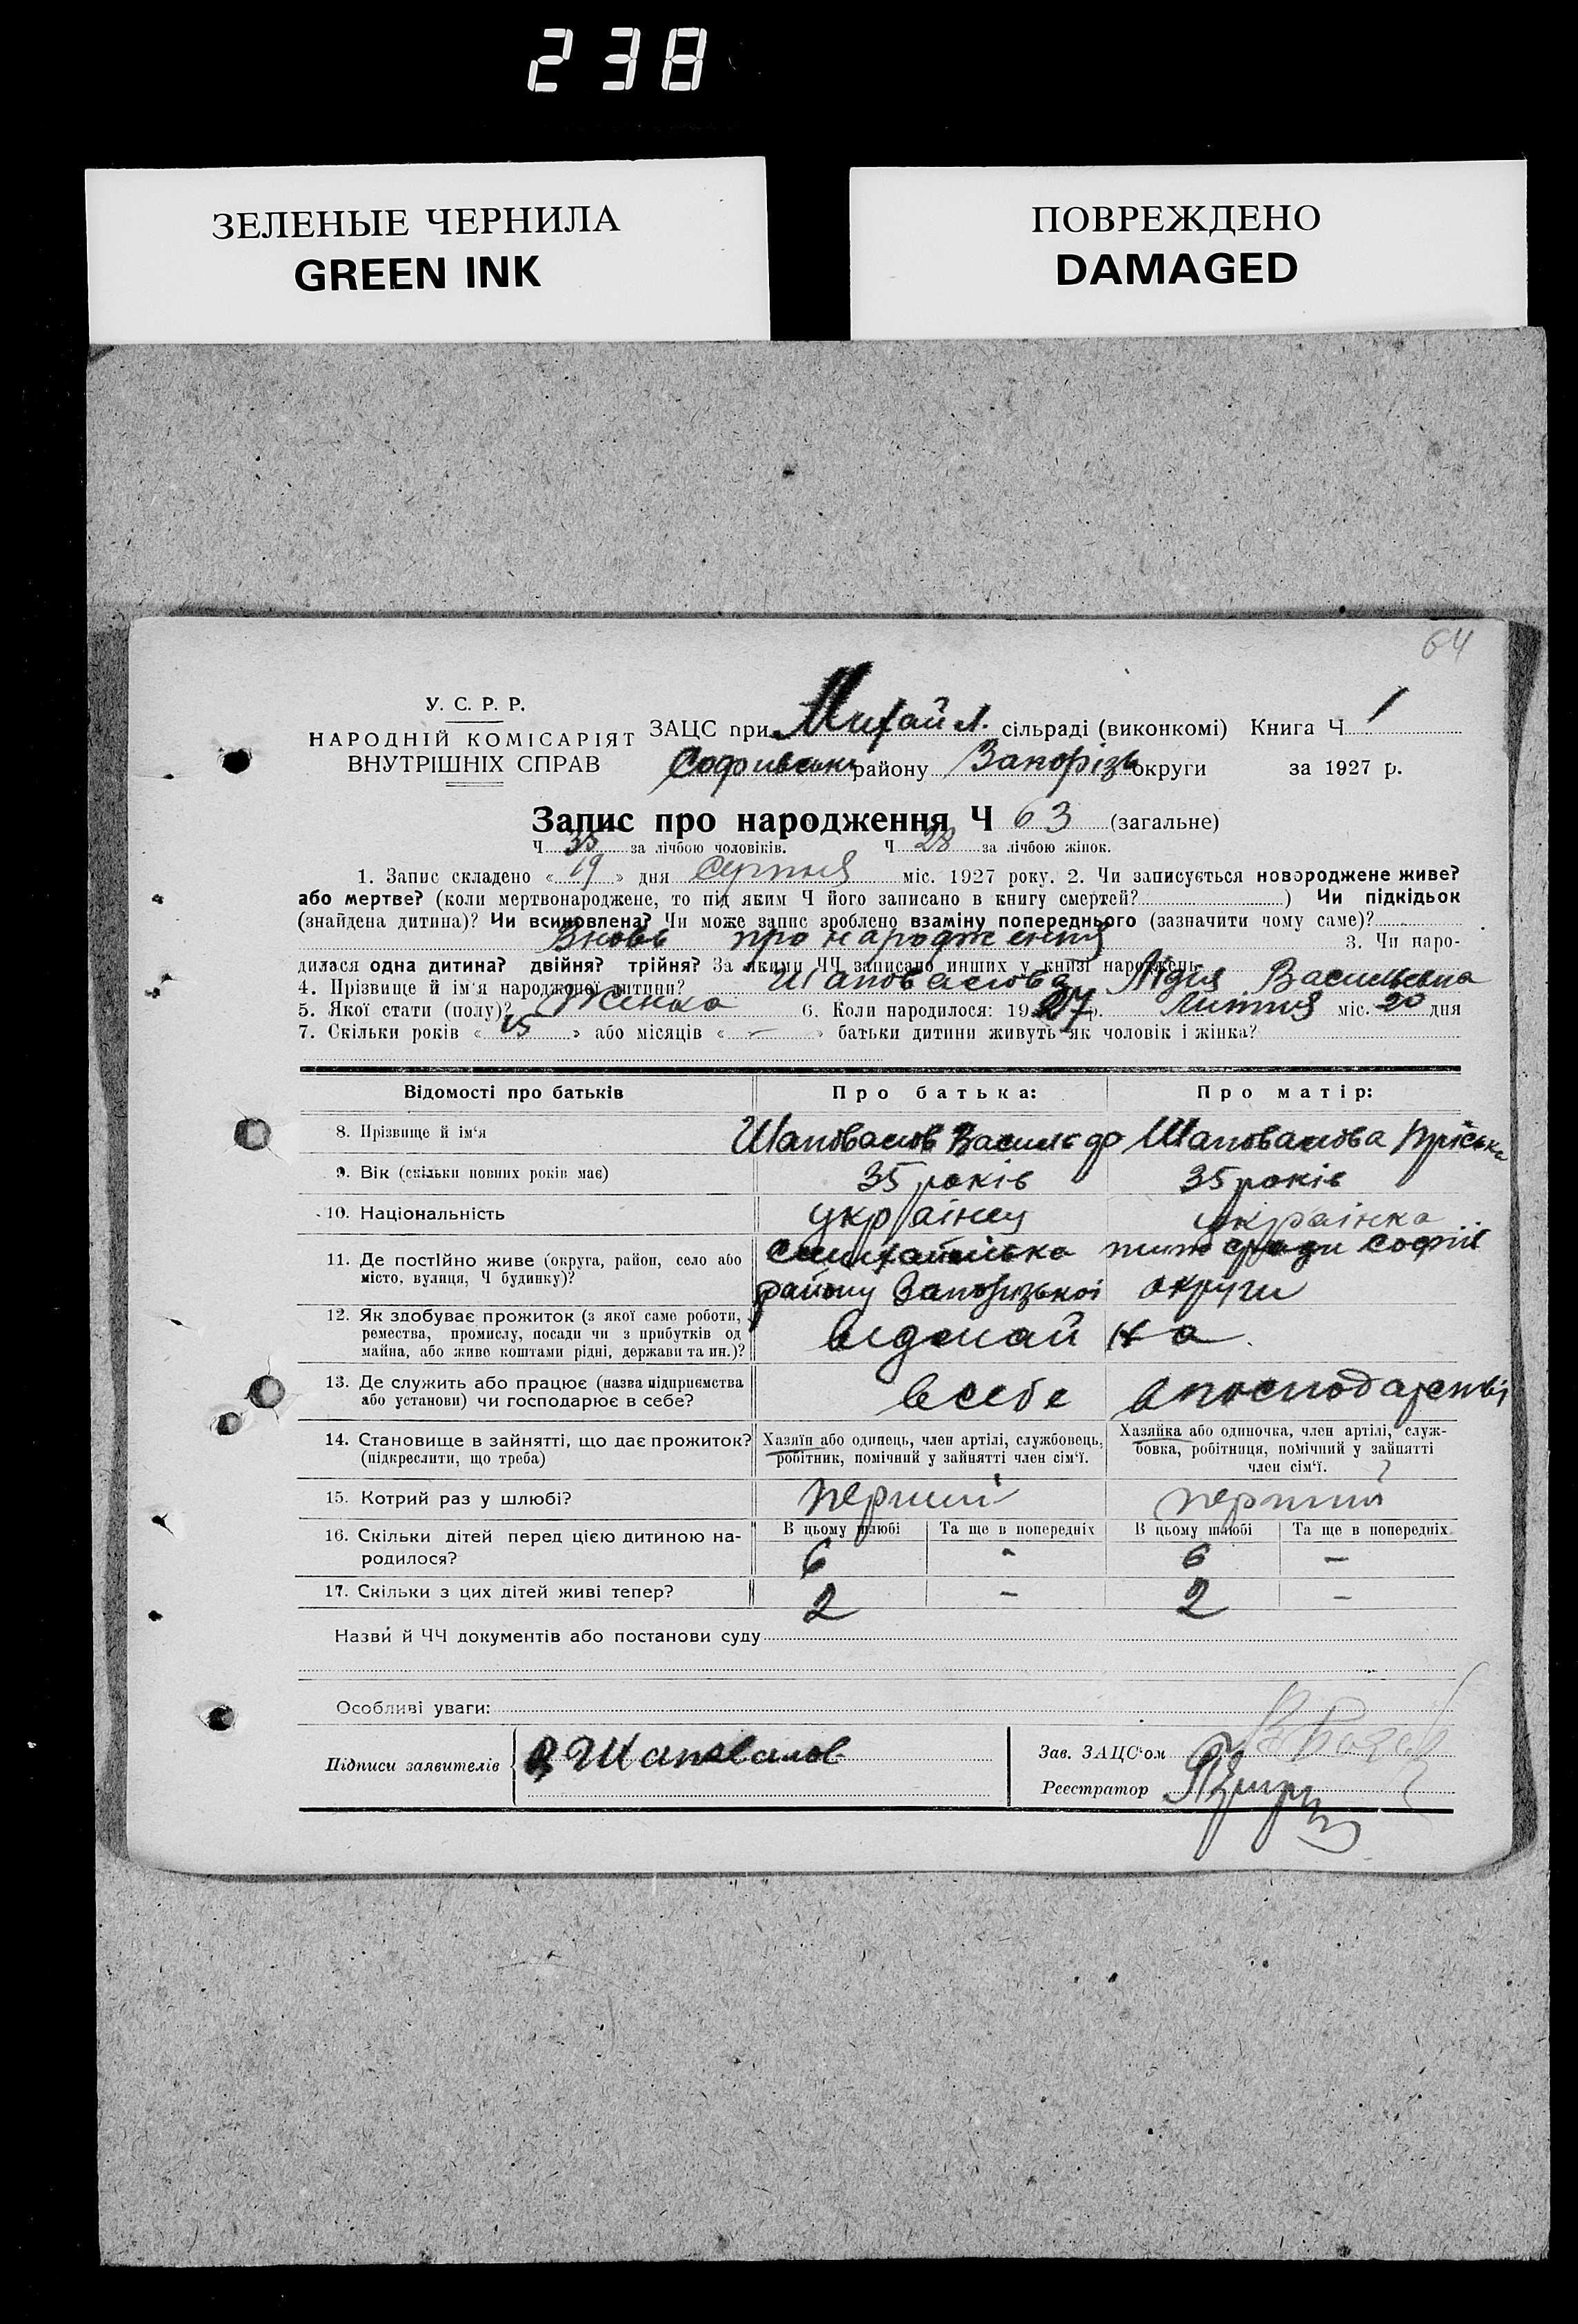 238
ЗЕЛЕНЫЕ ЧЕРНИЛА
GREEN INK
ПОВРЕЖДЕНО
DAMAGED
64
У. С. Р. Р.
НАРОДНІЙ КОМІСАРІЯТ
ВНУТРІШНІХ СПРАВ
ЗАЦС при Михайл. сільраді (виконкомі) Книга Ч 1
Софиевськ району Запорізь округи за 1927 р.
Запис про народження Ч 63 (загальне)
Ч 35 за лічбою чоловіків. Ч 28 за лічбою жінок.
1. Запис складено « 19 » дня Серпня міс. 1927 року. 2. Чи записується новороджене живе?
або мертве? (коли мертвонароджене, то під яким Ч його записано в книгу смертей? ) Чи підкідьок
(знайдена дитина)? Чи всиновлена? Чи може запис зроблено взаміну попереднього (зазначити чому саме)?
Вновь про народження 3. Чи наро-
дилася одна дитина? двійня? трійня? За якими ЧЧ записано инших у книзі народжень
4. Прізвище й ім'я народженої дитини? Шаповалова Лідия Васильевна
5. Якої стати (полу)? Женка 6. Коли народилося: 1927 р. Липня міс. 20 дня
7. Скільки років « 15 » або місяців « — » батьки дитини живуть як чоловік і жінка?
Відомості про батьків Про батька: Про матір:
8. Прізвище й ім'я Шаповалов Василь Шаповалова Пріська
9. Вік (скільки повних років має) 35 років 35 років
10. Національність українец українка
11. Де постійно живе (округа, район, село або
місто, вулиця, Ч будинку)?
району Запоризької округи
12. Як здобуває прожиток (з якої саме роботи,
ремества, промислу, посади чи з прибутків од
майна, або живе коштами рідні, держави та ин.)?
13. Де служить або працює (назва підприємства
або установи) чи господарює в себе? всебе в господарстві
14. Становище в зайнятті, що дає прожиток?
(підкреслити, що треба)
Хазяїн або одинець, член артілі, службовець,
робітник, помічний у зайнятті член сім'ї.
Хазяйка або одиночка, член артілі, служ-
бовка, робітниця, помічний у зайнятті
член сім'ї.
15. Котрий раз у шлюбі? перший перший
16. Скільки дітей перед цією дитиною на-
родилося?
В цьому шлюбі Та ще в попередніх В цьому шлюбі Та ще в попередніх
6 - 6 —
17. Скільки з цих дітей живі тепер? 2 — 2 —
Назви й ЧЧ документів або постанови суду
Особливі уваги:
Підписи заявителів Шаповалов
Зав. ЗАЦС'ом
Реєстратор